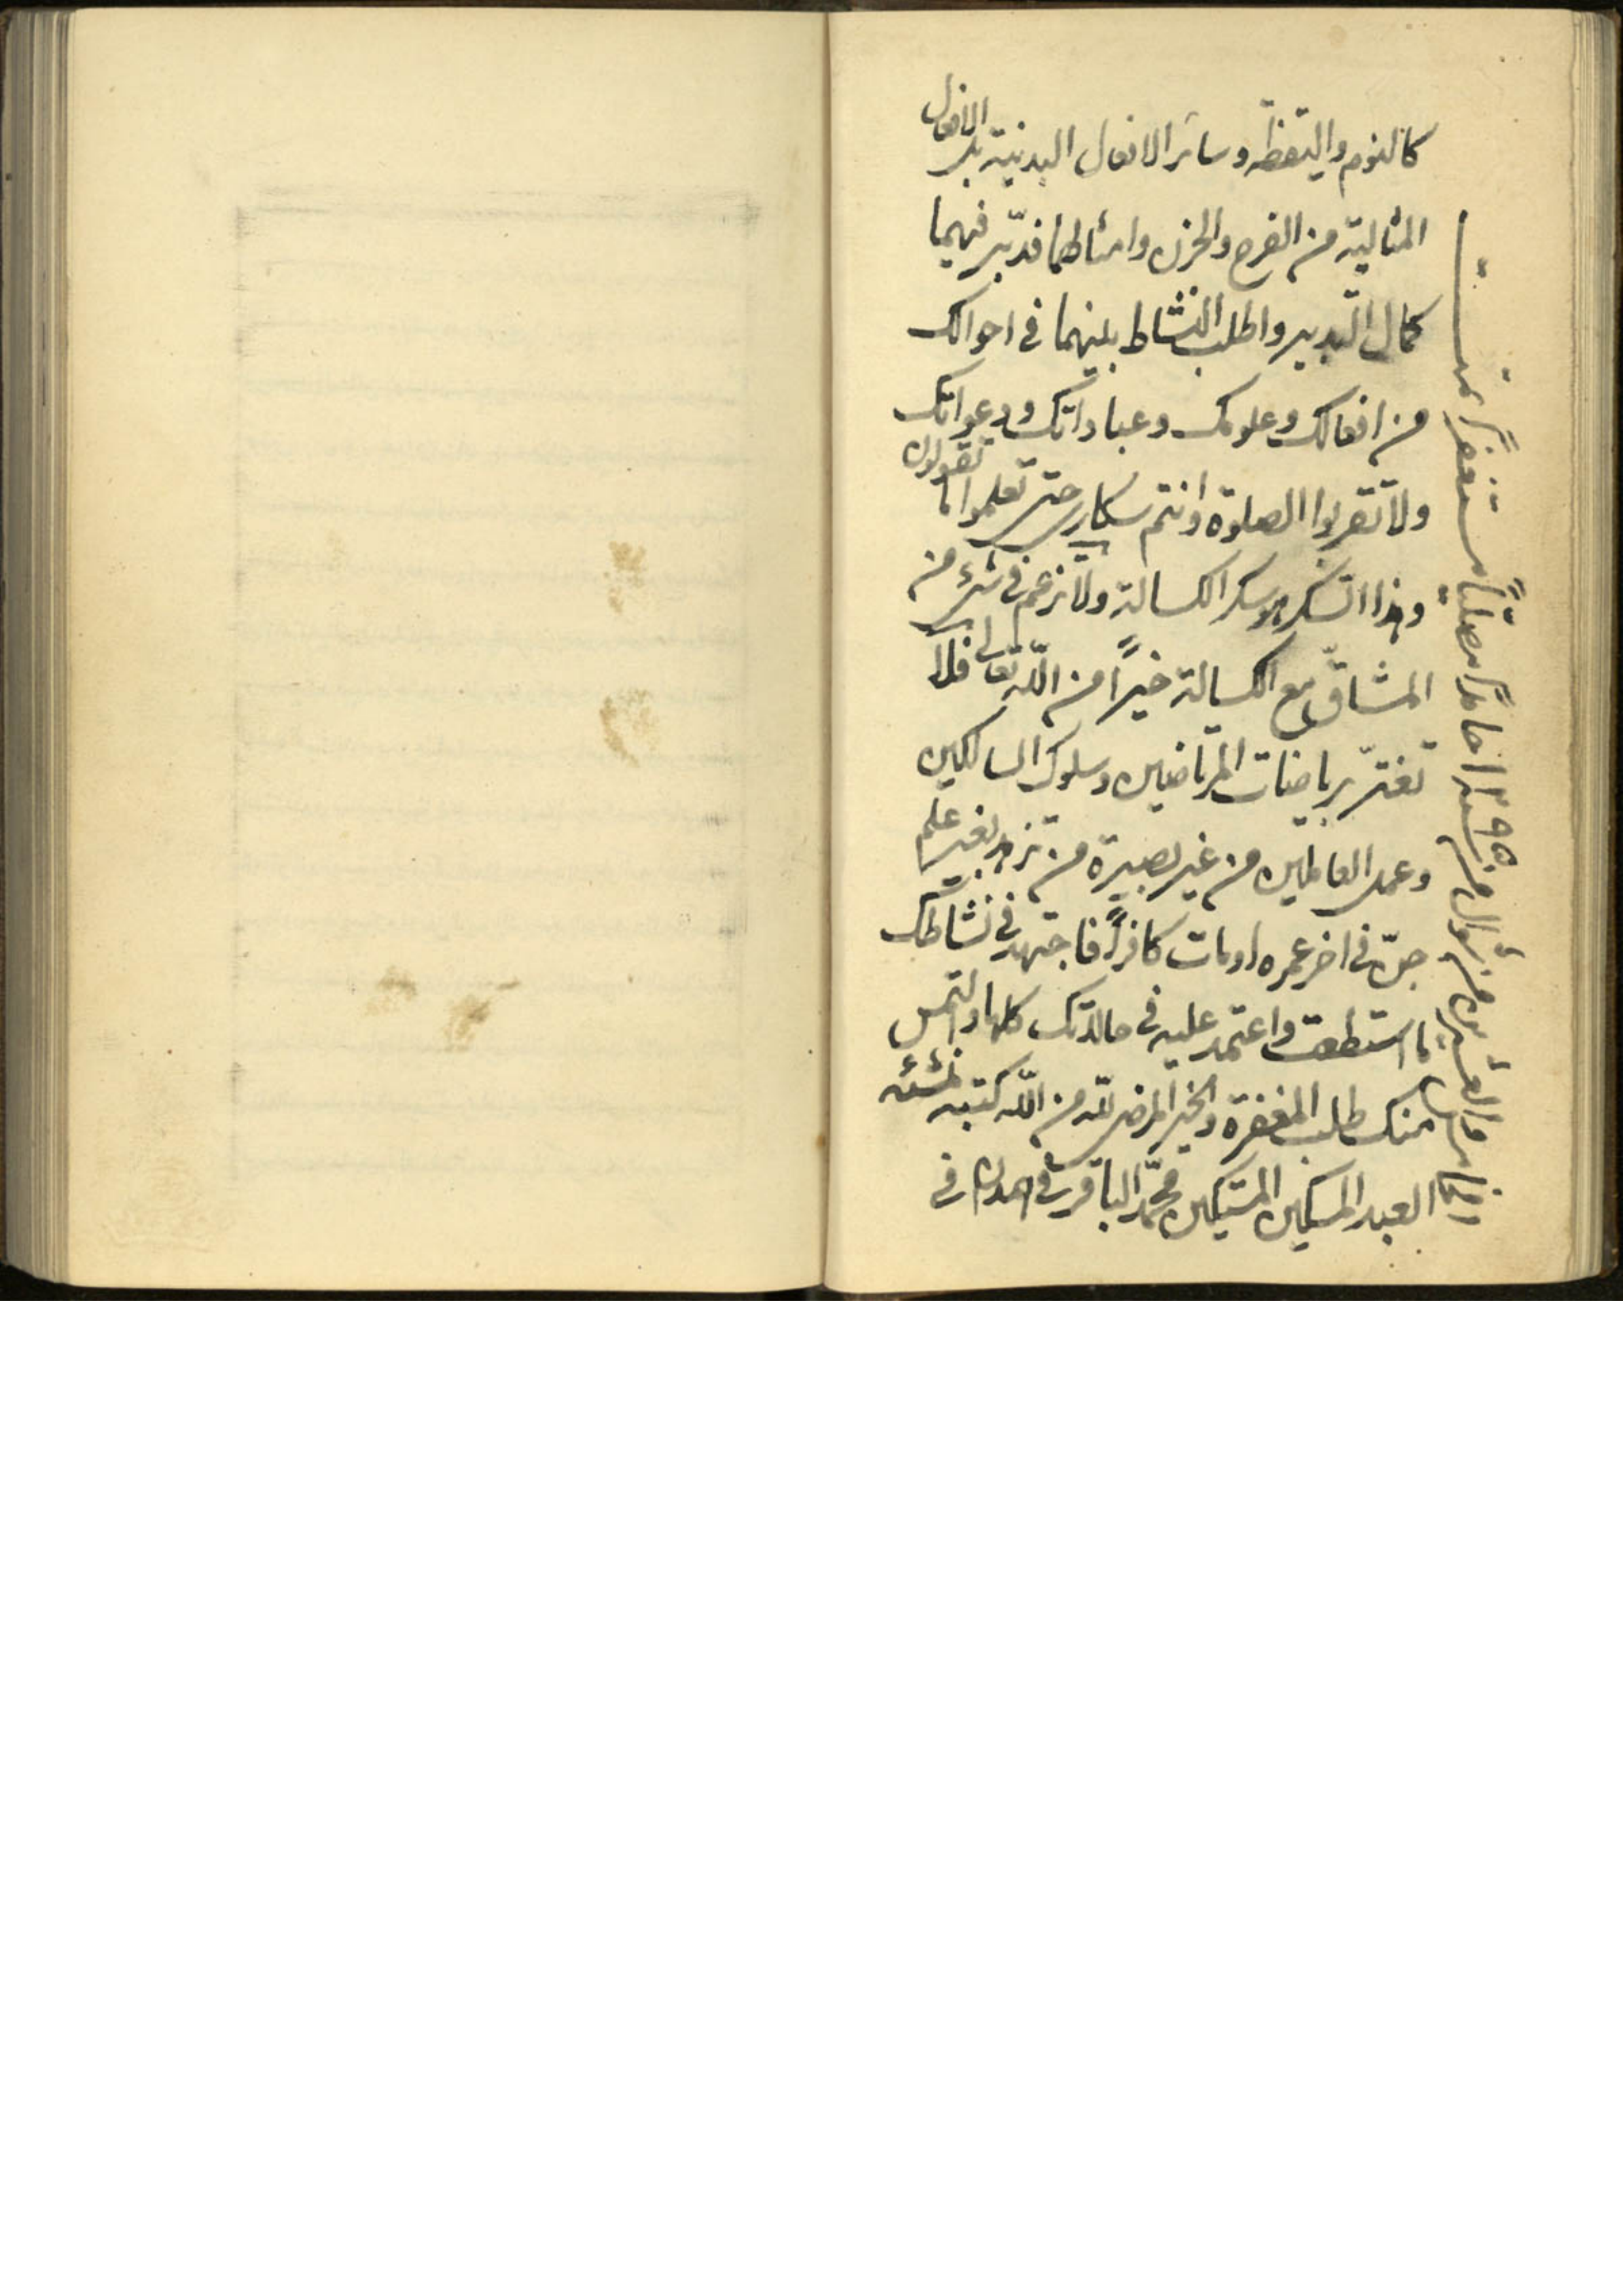 كالنوم واليقظة وسائر الافعال البدنية بل الافعال
المثالية من الفرح والحزن وامثالهما فدبّر فيهما
كمال التدبير واطلب النشاط بينهما في احوالك
من افعالك وعلومك وعباداتك ودعواتك
ولا تقربوا الصلوة وانتم سكارى حتى تعلموا ما تقولون
وهذا السكر هو سكر الكسالة ولا تزعم في شئ من
المشاقّ مع الكسالة خيراً من الله تعالى فلا
تغترّ برياضات المرتاضين وسلوك السالكين
وعمل العاملين من غير بصيرة من تزهد بغير علم
جنّ في اخر عمره او مات كافراً فاجتهد في نشاطك
ما استطعت واعتمد عليه في حالاتك كلها والتمس
منك طلب المغفرة والخير المرضي لله من الله كتبه لمنشئه
العبد المسكين المستكين محمّد الباقر في همدان في
الخامس والعشرين من شوال من سنة ١٢٩٥ حامداً مصلّياً مستغفراً تمت